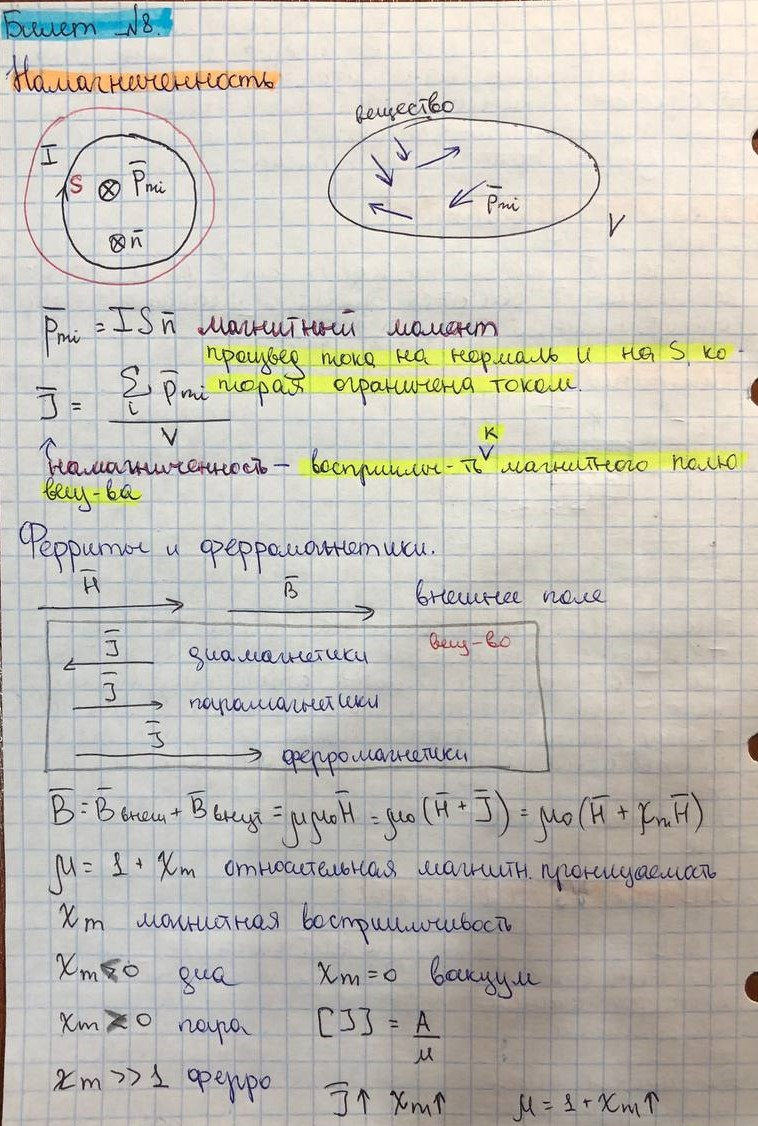 Билет №8.
Намагниченность
вещество
I
S
p̄mi
n̄
p̄mi
V
p̄mi = I S n̄ магнитный момент
произвед тока на нормаль и на S, ко-
торая ограничена током.
J̄ = Σi p̄mi / V
к
намагниченность – восприимч-ть магнитного полю
вещ-ва
Ферриты и ферромагнетики.
H̄ B̄ внешнее поле
J̄ диамагнетики вещ-во
J̄ парамагнетики
J̄ ферромагнетики
B̄ = B̄внеш + B̄внут = μμ₀H̄ = μ₀(H̄ + J̄) = μ₀(H̄ + χmH̄)
μ = 1 + χm относительная магнитн. проницаемость
χm магнитная восприимчивость
χm < 0 диа χm = 0 вакуум
χm > 0 пара [J] = А/м
χm >> 1 ферро
J̄↑ χm↑ μ = 1 + χm↑